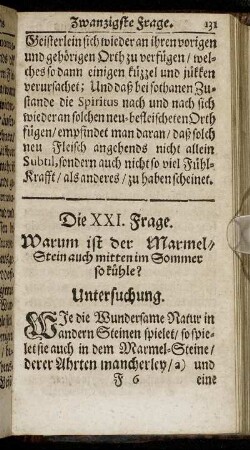 Zwanzigste Frage. 131
Geisterlein sich wieder an ihren vorigen
und gehörigen Orth zu verfügen / wel-
ches so dann einigen küzzel und jükken
verursachet; Und daß bei sothanen Zu-
stande die Spiritus nach und nach sich
wieder an solchen neu-befleischeten Orth
fügen / empfindet man daran / daß solch
neu Fleisch angehends nicht allein
Subtil, sondern auch nicht so viel Fühl-
Krafft / als anderes / zu haben scheinet.
Die XXI. Frage.
Warum ist der Marmel-/
Stein auch mitten im Sommer
so kühle?
Untersuchung.
WJe die Wundersame Natur in
andern Steinen spielet / so spie-
let sie auch in dem Marmel-Steine /
derer Ahrten mancherley / a) und
F 6 eine